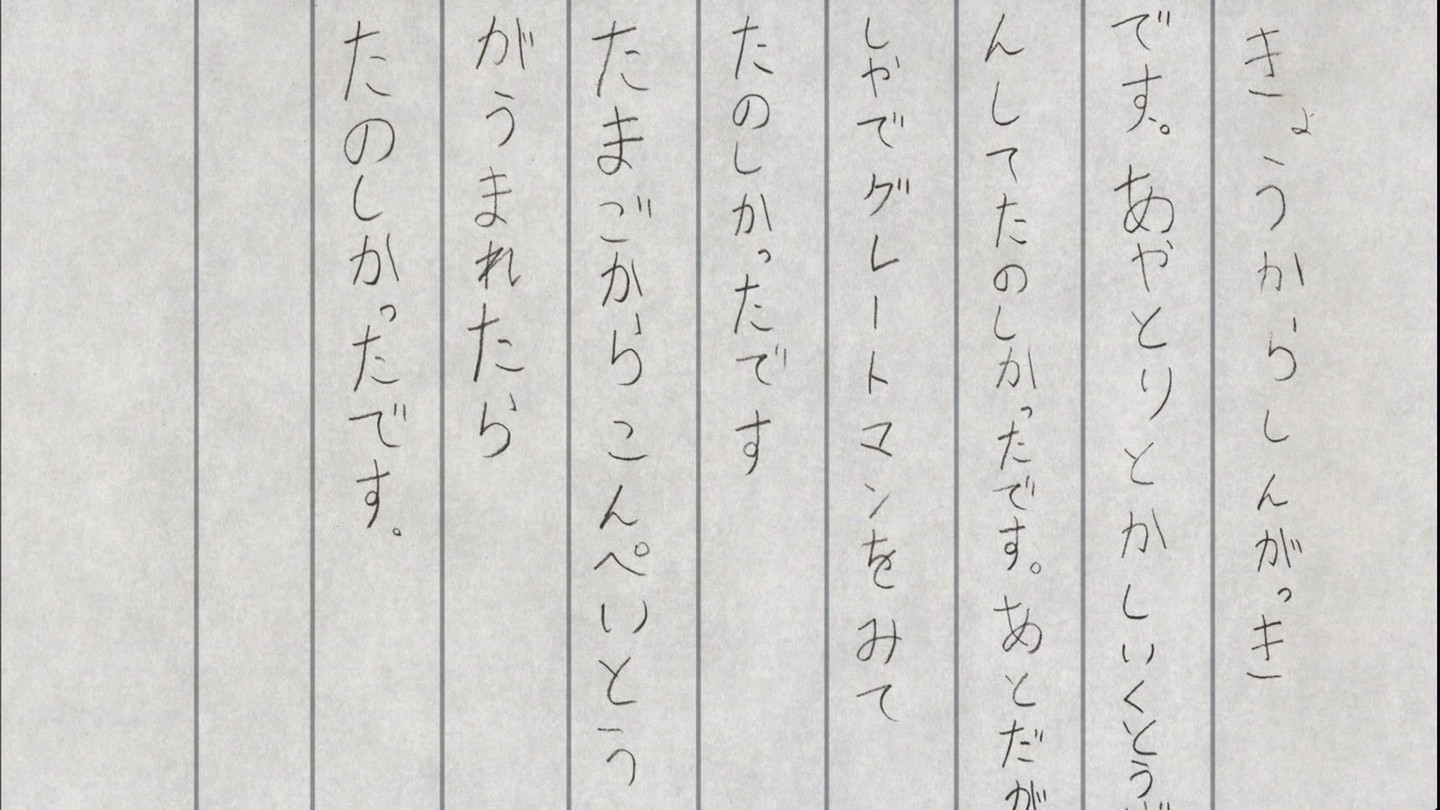 きょうからしんがっき
です。あやとりとかしいくとう
んしてたのしかったです。あとだが
しやでグレートマンをみて
たのしかったです
たまごからこんぺいとう
がうまれたら
たのしかったです。